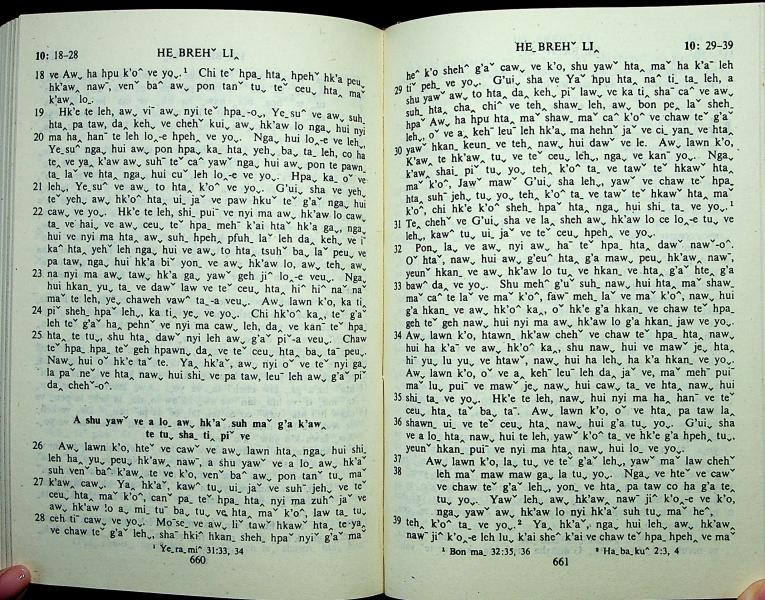 10: 18-28 HE_BREHˇ LI‸
18 ve Aw‸ ha hpu k'oˆ ve yo‸.¹ Chi teˇ hpa_ hta‸ hpehˇ hk'a peu‸
hk'aw‸ nawˉ, venˇ baˆ aw‸ pon tanˇ tu‸ teˇ ceu‸ hta‸ maˇ
k'aw‸ lo_.
19 Hk'e te leh, aw‸ viˉ aw‸ nyi teˇ hpa_-o‸, Ye_suˆ ve aw‸ suh‸
hta‸ pa taw, da‸ keh‸ ve chehˇ kui‸ aw‸ hk'aw lo nga‸ hui nyi
20 ma ha‸ hanˉ te leh lo‸-e hpeh‸ ve yo‸. Nga‸ hui lo‸-e ve leh‸
Ye_suˆ nga‸ hui aw‸ pon hpa‸ ka_ hta‸ yeh‸ ba‸ ta_ leh, co ha
te‸ ve ya‸ k'aw aw‸ suhˉ teˇ caˆ yawˇ nga‸ hui aw‸ pon te pawn_
ta_ laˇ ve hta‸ nga‸ hui cuˇ leh lo‸-e ve yo‸. Hpa‸ ka_ oˇ ve
21 leh‸, Ye_suˆ ve aw‸ to hta‸ k'oˆ ve yo‸. G'ui‸ sha ve yeh‸
teˇ yeh‸ aw‸ hk'oˆ hta‸ ui_ jaˇ ve paw hkuˇ teˇ g'aˇ nga‸ hui
22 caw‸ ve yo‸. Hk'e te leh, shi_ puiˉ ve nyi ma aw‸ hk'aw lo caw‸
ta_ ve hai‸ ve aw‸ ceu‸ teˇ hpa_ mehˇ k'ai htaˇ hk'a ga‸, nga‸
hui ve nyi ma hta‸ aw‸ suh_ hpeh‸ pfuh‸ laˇ leh da‸ keh‸ ve i
kaˆ hta‸ yehˇ leh nga‸ hui ve aw‸ to hta‸ tsuhˇ ba‸ laˇ peu‸ ve
pa taw, nga‸ hui hk'a biˇ yon‸ ve aw‸ hk'aw lo, aw‸ teh‸ aw‸
23 na nyi ma aw‸ taw‸ hk'a ga‸ yawˇ geh jiˆ lo‸-e veu_. Nga‸
hui hkan_ yu‸ ta_ ve dawˇ law ve teˇ ceu‸ hta‸ hiˆ hiˆ naˇ naˇ
maˇ te leh, ye‸ chaweh vawˆ ta_-a veu_. Aw‸ lawn k'o‸ ka ti‸
24 piˇ sheh_ hpaˇ leh‸, ka ti‸ ye‸ ve yo‸. Chi hk'oˆ ka‸, teˇ g'aˇ
leh teˇ g'aˇ ha‸ pehnˇ ve nyi ma caw‸ leh, da‸ ve kanˉ teˇ hpa_
25 hta‸ te tu‸, shu hta‸ dawˇ nyi leh aw‸ g'aˇ piˇ-a veu_. Chaw
teˇ hpa_ hpaˉ teˇ geh hpawn‸ da‸ ve teˇ ceu‸ hta‸ ba‸ taˉ peu‸.
Naw‸ hui oˇ hk'e taˇ te. Ya‸ hk'aˇ, aw‸ nyi oˇ ve teˇ nyi ga‸
la paˇ neˇ ve hta‸, naw‸ hui shi‸ ve pa taw, leuˉ leh aw‸ g'aˇ piˇ
da‸ chehˇ-oˆ.
A shu yawˇ ve a lo_ aw‸ hk'aˇ suh maˇ g'a k'aw‸
te tu‸ sha_ti‸ piˇ ve
26 Aw‸ lawn k'o‸ hteˇ ve cawˇ ve aw‸ lawn hta‸ nga‸ hui shi‸
leh ha‸ yu‸ peu‸ hk'aw‸ nawˉ, a shu yawˇ ve a lo_ aw‸ hk'aˇ
suh venˇ baˆ k'aw‸ te ve k'o‸ venˇ baˆ aw‸ pon tanˇ tu‸ ma‸
27 k'aw‸ caw‸. Ya‸ hk'aˇ, kawˆ tu‸ ui_ jaˇ ve suhˉ jeh‸ ve teˇ
ceu‸ hta‸ maˇ k'oˆ, canˇ pa‸ teˇ hpa_ hta‸ nyi ma zuhˆ jaˇ ve
aw‸ hk'aw lo a_ mi_ tuˇ ba‸ tu‸ ve hta‸ maˇ k'oˆ, law ta_ tu‸
28 ceh tiˉ caw‸ ve yo‸. Mo_seˇ ve aw‸ liˇ tawˇ hkawˇ hta‸ te ya‸
ve chaw teˇ g'aˇ leh‸, shaˉ hkiˆ hkan_ sheh_ hpaˇ nyiˇ g'aˇ maˇ
¹ Ye_ra_miˆ 31:33, 34
660
HE_BREHˇ LI‸ 10: 29-39
heˆ k'o shehˆ g'aˇ caw‸ ve k'o, shu yawˇ hta‸ maˇ ha k'aˉ leh
29 tiˇ peh‸ ve yo‸. G'ui‸ sha ve Ya hpu hta‸ naˆ ti‸ ta_ leh, a
shu yawˇ aw‸ to hta‸ da‸ keh‸ piˇ law‸ ve ka ti‸ shaˉ caˆ ve aw‸
suh_ hta‸ cha‸ chiˆ ve teh‸ shaw_ leh, aw‸ bon pe‸ laˇ sheh_
hpaˇ Aw‸ ha hpu hta‸ maˇ shaw_ maˇ caˆ k'oˆ ve chaw teˇ g'aˇ
leh‸, oˇ ve a‸ kehˉ leuˉ leh hk'a‸ ma hehnˇ jaˇ ve ci_ yan_ ve hta‸
30 yawˇ hkan_ keun_ ve teh‸ naw‸ hui dawˇ ve le. Aw‸ lawn k'o‸
K'aw‸ te hk'aw‸ tu‸ ve teˇ ceu leh‸, nga‸ ve kanˉ yo‸. Nga‸
k'aw‸ shai_ piˇ tu‸ yo‸ teh‸ k'oˆ ta_ ve tawˇ teˇ hkawˇ hta‸
maˇ k'oˆ, Jawˇ mawˇ G'ui‸ sha leh‸, yawˇ ve chaw teˇ hpa_
hta‸ suhˉ jeh‸ tu‸ yo‸ teh‸ k'oˆ ta_ ve tawˇ teˇ hkawˇ hta‸ maˇ
k'oˆ, chi hk'e k'oˆ sheh_ hpaˇ hta‸ nga‸ hui shi‸ ta_ ve yo‸.¹
31 Te‸ chehˇ ve G'ui‸ sha ve la‸ sheh aw‸ hk'aw lo ce lo_-e tu‸ ve
leh‸, kawˆ tu‸ ui_ jaˇ ve teˇ ceu‸ hpeh‸ ve yo‸.
32 Pon_ la‸ ve aw‸ nyi aw‸ haˉ teˇ hpa_ hta‸ dawˇ nawˇ-oˆ.
Oˇ hta‸ naw‸ hui aw‸ g'euˆ hta‸ g'a maw‸ peu‸ hk'aw‸ nawˉ,
yeunˇ hkan_ ve aw‸ hk'aw lo tu‸ ve hkan_ ve hta‸ g'aˇ hte g'a
33 bawˆ da‸ ve yo‸. Shu mehˆ g'uˇ suh_ naw‸ hui hta‸ maˇ shaw_
maˇ caˆ te laˇ ve maˇ k'oˆ, fawˇ meh_ laˇ ve maˇ k'oˆ, naw‸ hui
g'a hkan_ ve aw‸ hk'oˆ ka‸, oˇ hk'e g'a hkan_ ve chaw teˇ hpa_
geh teˇ geh naw‸ hui nyi ma aw‸ hk'aw lo g'a hkan_ jaw ve yo‸.
34 Aw‸ lawn k'o‸ htawn‸ hk'aw chehˇ ve chaw teˇ hpa_ hta‸ naw‸
hui ha k'aˇ ve aw‸ hk'oˆ ka‸, shu naw‸ hui ve mawˇ je‸ hta‸
hiˉ yu‸ lu yu‸ ve htawˇ, naw‸ hui ha leh‸ ha k'a hkan_ ve yo‸.
Aw‸ lawn k'o‸ oˇ ve a‸ kehˉ leuˉ leh da‸ jaˇ ve, maˇ mehˉ puiˉ
maˇ lu‸ puiˉ ve mawˇ je‸ naw‸ hui caw‸ ta_ ve hta‸ naw‸ hui
35 shi‸ ta_ ve yo‸. Hk'e te leh, naw‸ hui nyi ma ha‸ hanˉ ve teˇ
ceu‸ hta‸ taˇ ba‸ taˉ. Aw‸ lawn k'o‸ oˇ ve hta‸ pa taw la‸
36 shawn‸ ui_ ve teˇ ceu‸ hta‸ naw‸ hui g'a tu‸ yo‸. G'ui‸ sha
ve a lo_ hta‸ naw‸ hui te leh, yawˇ k'oˆ ta_ ve hk'e g'a hpeh tu‸
yeunˇ hkan_ puiˉ ve nyi ma hta‸ naw‸ hui lo‸ ve yo‸.
37 Aw‸ lawn k'o‸ la‸ tu‸ ve teˇ g'aˇ leh‸, yawˇ maˇ law chehˇ
38 leh maˇ maw maw ga‸ la tu‸ yo‸. Nga‸ ve hteˇ ve cawˇ
ve chaw teˇ g'aˇ leh‸, yon‸ ve hta‸ pa taw co ha g'a te‸
tu‸ yo‸. Yawˇ leh‸ aw‸ hk'aw‸ nawˉ jiˆ k'o‸-e ve k'o,
nga‸ yawˇ aw‸ hk'aw lo nyi hk'aˇ suh tu‸ maˇ heˆ,
39 teh‸ k'oˆ ta_ ve yo‸.² Ya‸ hk'aˇ, nga‸ hui leh‸ aw‸ hk'aw‸
nawˉ jiˆ k'o‸-e leh lu‸ k'ai sheˆ k'ai ve chaw teˇ hpa_ hpeh‸ ve maˇ
¹ Bon ma_ 32:35, 36 ² Ha_ba_kuˆ 2:3, 4
661